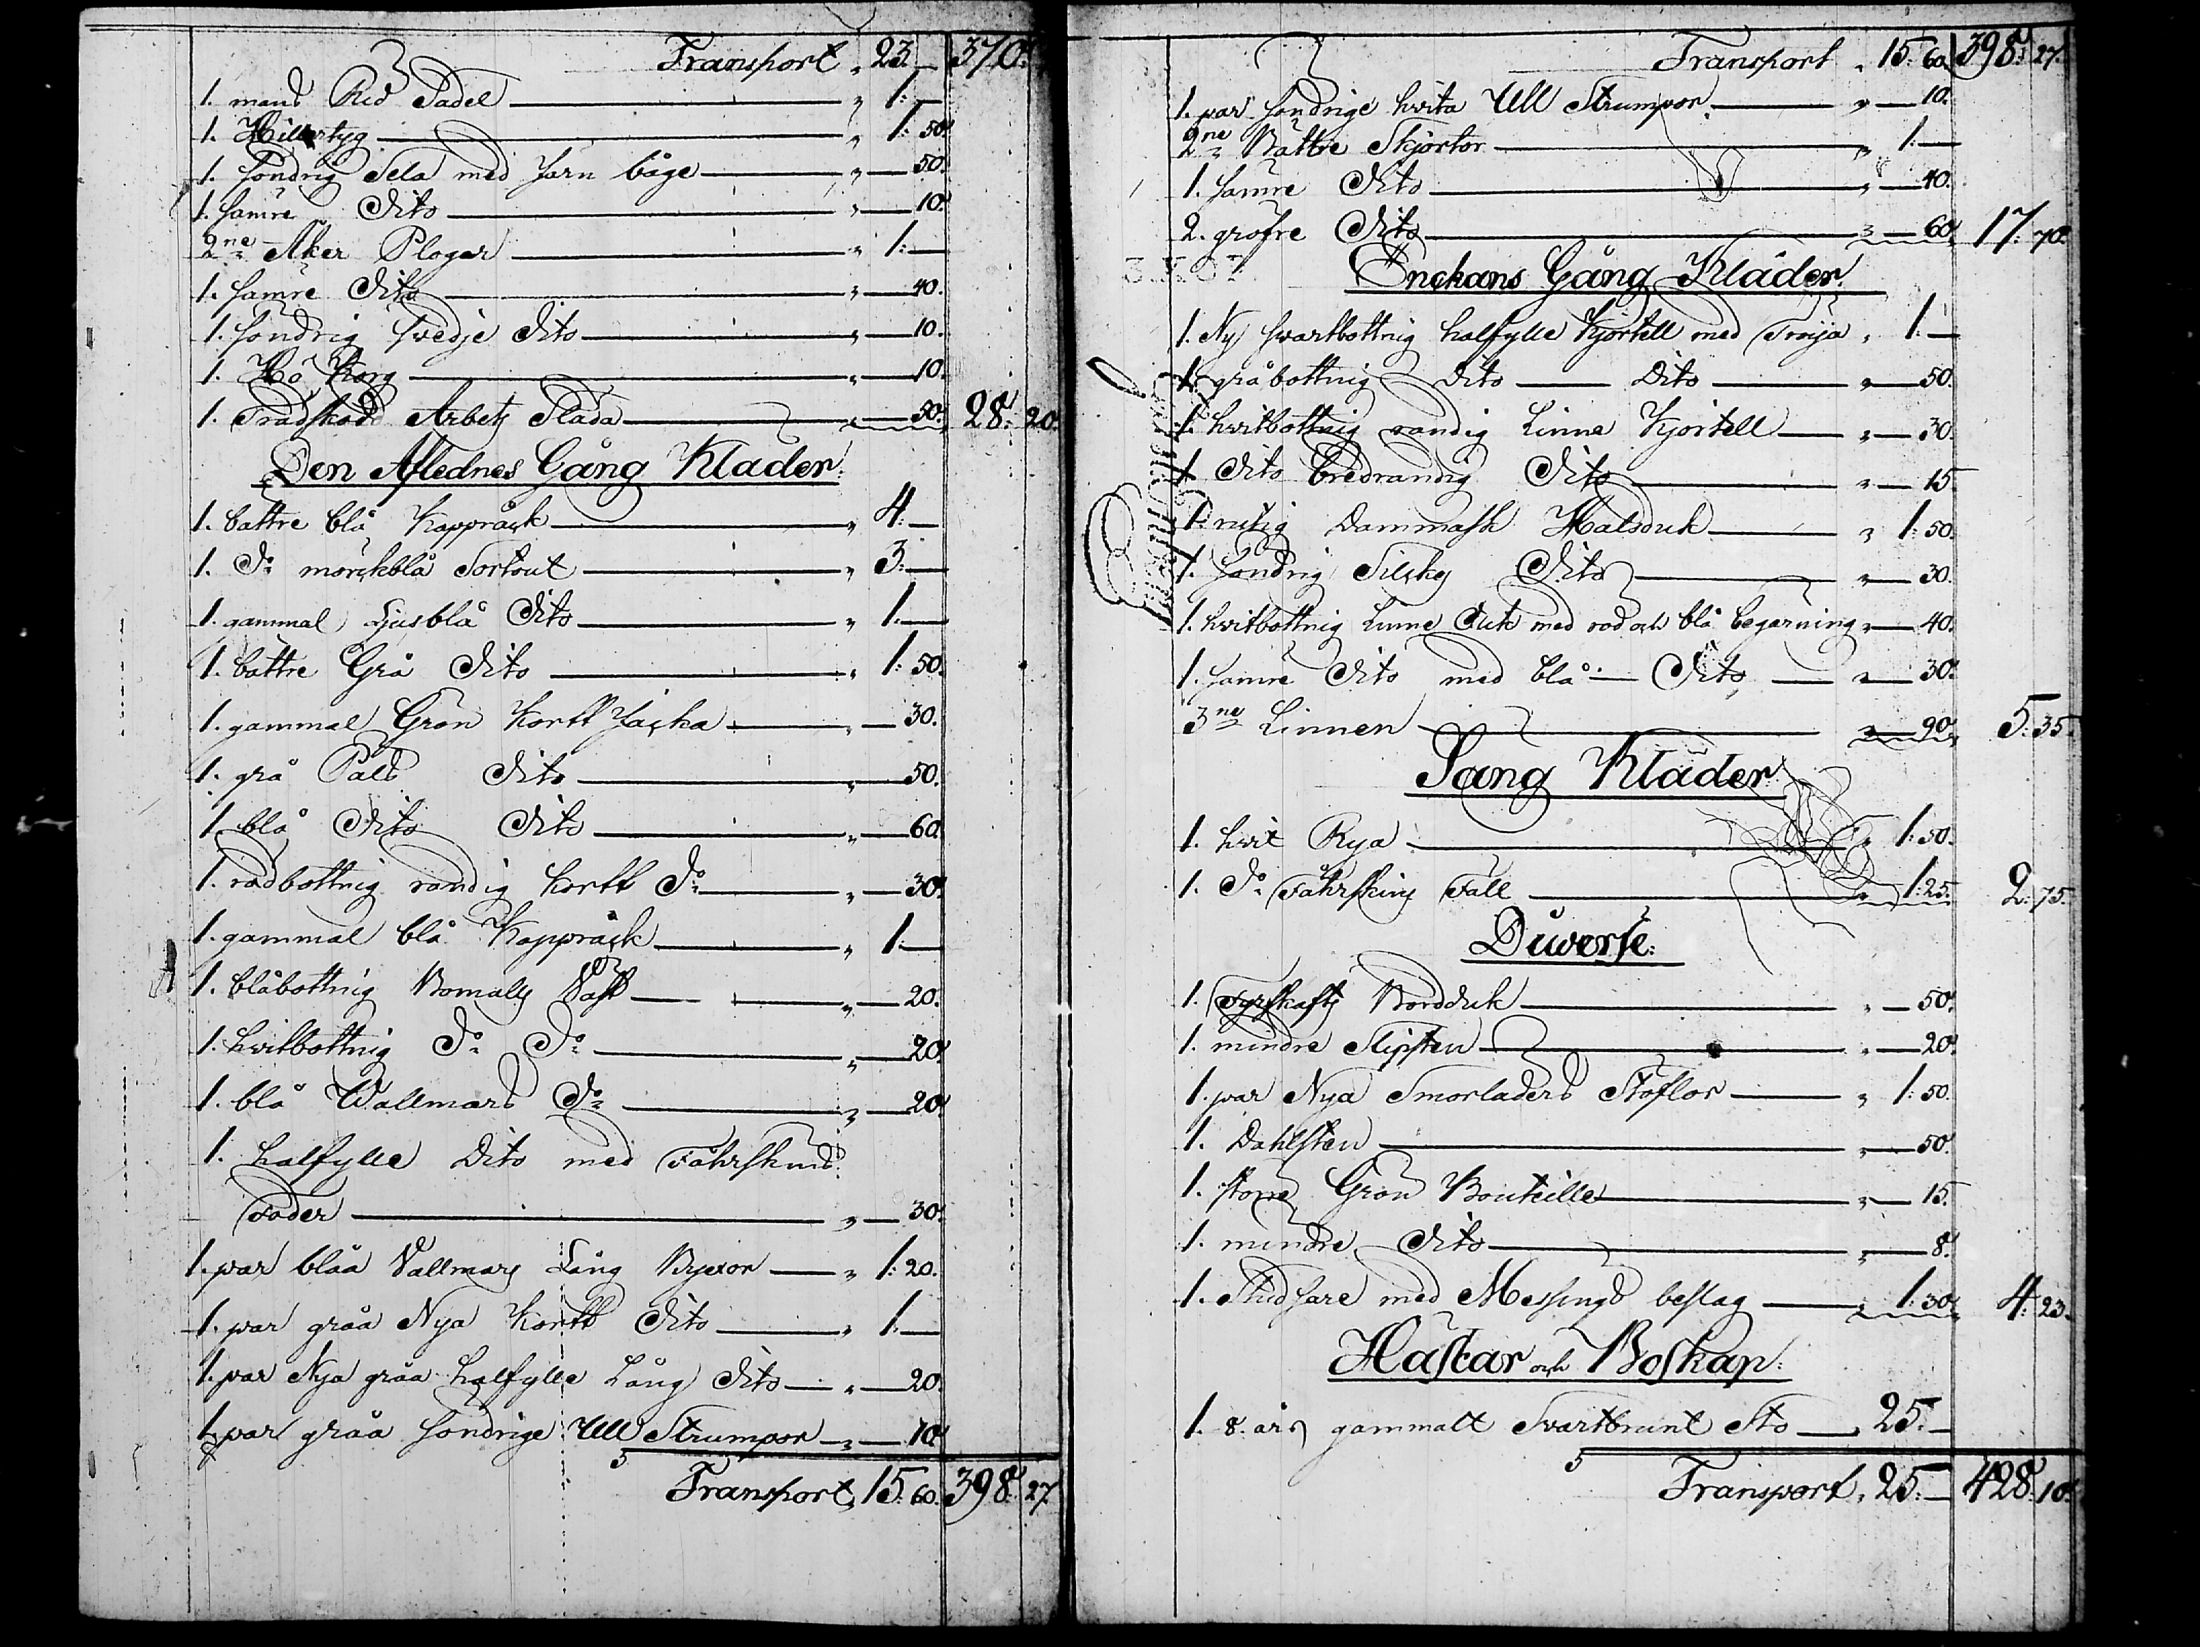 Transport „ 23 — 370:
1. mans Rid Sadel — „ 1: —
1. Hillertyg — „ 1: 50.
1. söndrig Sela med Jarn båge — „ — 50.
1. samre Dito — „ — 10.
2ne Åker Plogar — „ 1: —
1. samre Dito — „ — 40.
1. söndrig svedje Dito — „ — 10.
1. Hö Korg — „ — 10.
1. Trädskodd Arbets Släda — „ — 50. 28: 20.
Den Aflednes Gång Kläder.
1. battre blå Kappråck — „ 4: —
1. Do mörckblå Sortout — „ 3: —
1. gammal Ljusblå Dito — „ 1: —
1. battre Grå Dito — „ 1: 50.
1. gammal Grön Kortt Jacka — „ — 30.
1. grå Päls Dito — „ — 50.
1. blå Dito Dito — „ — 60.
1. rödbottnig randig kortt Do — „ — 30.
1. gammal blå Kappråck — „ 1: —
1. blåbottnig Bomulls Väst — „ — 20.
1. hvitbottnig Do Do — „ — 20.
1. blå Wallmars Do — „ — 20.
1. halfylle Dito med Fåhrskinns
Foder — „ — 30.
1. par blåa Vallmars Lång Byxor — „ 1: 20.
1. par gråa Nya Kortt Dito — „ 1: —
1. par Nya gråa halfylle Lång Dito — „ — 20.
1. par gråa söndrige Ull Strumpor — „ — 10.
Transport „ 15: 60. 398: 27.
Transport „ 15: 60. 398: 27.
1. par söndrige hvita Ull Strumpor — „ — 10.
2ne Bättre Skjortor — „ 1: —
1. samre Dito — „ — 40.
2. grofre Dito — „ — 60. 17: 70.
Enckans Gång Kläder.
1. Ny svartbottnig halfylle Kjortell med Tröija „ 1: —
1. gråbottnig Dito — Dito — „ — 50.
1. hvitbottnig randig Linne Kjortell — „ — 30.
1. Dito bredrandig Dito — „ — 15.
1. rutig Dammask Halsduk — „ 1: 50.
1. söndrig Silcky Dito — „ — 30.
1. hvitbottnig Linne Duk med röd och blå begarning „ — 40.
1. samre Dito med blå — Dito — „ — 30.
3ne Linnen — „ — 90. 5: 35.
Säng Kläder
1. hvit Rya — „ 1: 50.
1. Do Fåhrskins Fäll — „ 1: 25. 2: 75.
Diverse:
1. Fyrskafts Bordduk — „ — 50.
1. mindre Slipsten — „ — 20.
1. par Nya Smorläders Stöflor — „ 1: 50.
1. Dahlsten — „ — 50.
1. större Grön Bouteille — „ — 15.
1. mindre Dito — „ — 8.
1. Studsare med Messings beslag — „ 1: 30. 4: 23.
Hästar och Boskap:
1. 8. års gammalt Svartbrunt Sto — „ 25: —
Transport „ 25: — 428: 10.